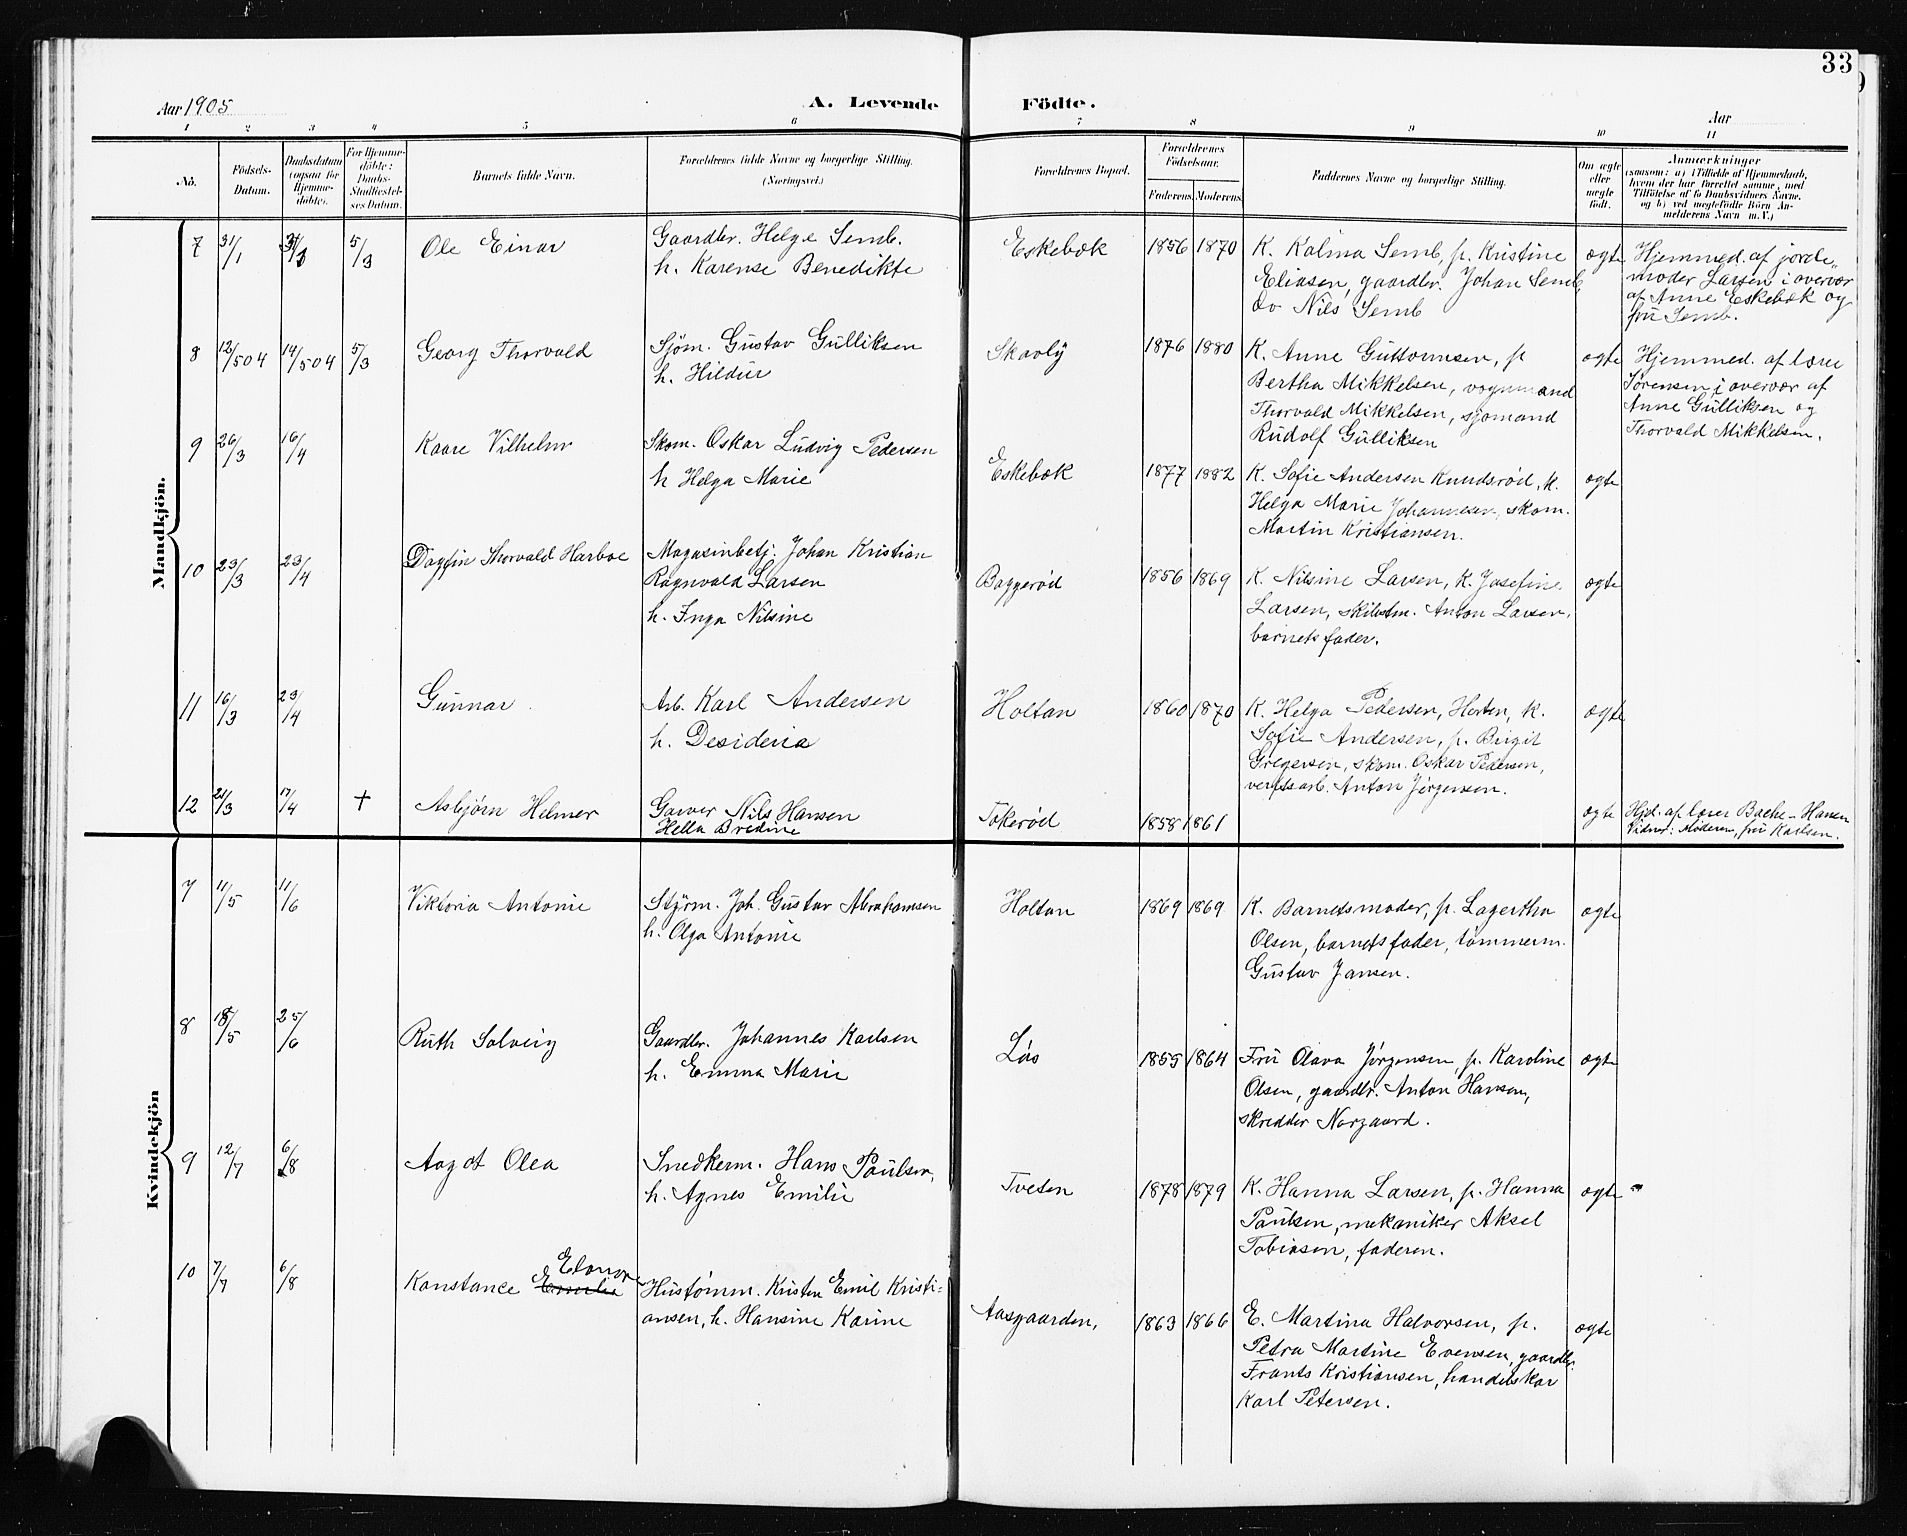 33
Aar 1905
A. Levende Födte.
Aar
1 2 3 4 5 6 7 8 9 10 11
No.
Födsels-
Datum.
Daabsdatum
(ogsaa for
Hjemme-
döbte).
For Hjemme-
döbte:
Daabs-
Stadfæstel-
ses Datum.
Barnets fulde Navn.
Forældrenes fulde Navne og borgerlige Stilling.
(Næringsvei.)
Forældrenes Bopæl.
Forældrenes
Födselsaar.
Faderens. Moderens.
Faddernes Navne og borgerlige Stilling.
Om ægte
eller
uegte
födt.
Anmærkninger
(saasom: a) i Tilfælde af Hjemmedaab,
hvem der har forrettet samme, med
Tilföielse af to Daabsvidners Navne.
og b) ved uegtefödte Börn An-
melderens Navn m. V.)
Mandkjön.
7 31/1 5/3 Ole Einar
Gaardbr. Helge Semb.
h. Karense Benedikte
Eskebæk 1856 1870
K. Kalina Semb, p. Kristine
Eliasen, gaardbr. Johan Semb,
do Nils Semb
ægte
Hjemmed. af jorde-
moder Larsen i overvær
af Anne Eskebæk og
fru Semb.
8 12/5 04 14/5 04 5/3 Georg Thorvald
Sjøm. Gustav Gulliksen
h. Hildur
Skavly 1876 1880
K. Anne Guttormsen, p
Bertha Mikkelsen, vognmand
Thorvald Mikkelsen, sjømand
Rudolf Gulliksen
ægte
Hjemmed. af lære
Sørensen i overvær af
Anne Gulliksen og
Thorvald Mikkelsen.
9 26/3 16/4 Kaare Vilhelm
Skom. Oskar Ludvig Pedersen
h Helga Marie
Eskebæk 1877 1882
K. Sofie Andersen Knudsrød, k.
Helga Marie Johannesen, skom.
Martin Kristiansen.
ægte
10 23/3 23/4 Dagfin Thorvald Harboe
Magasinbetj. Johan Kristian
Ragnvald Larsen
h. Inga Nilsine
Baggerød 1856 1869
K. Nilsine Larsen, K. Josefine
Larsen, skibstm. Anton Larsen,
barnets fader.
ægte
11 16/3 23/4 Gunnar
Arb. Karl Andersen
h. Desideria
Holtan 1860 1870
K. Helga Pedersen, Horten, k.
Sofie Andersen, p. Birgit
Gregersen, skom. Oskar Pedersen,
verftsarb. Anton Jørgensen.
ægte
12 21/3 17/4 + Asbjørn Helmer
Garver Nils Hansen
Hella Bredine
Tokerød 1858 1861
ægte
Hjd. af lærer Bache-Hansen
Vidner: Moderen, fru Karlsen.
Kvindekjön
7 11/5 11/6 Viktoria Antonie
Styrm. Joh. Gustav Abrahamsen
h. Olga Antonie
Holtan 1869 1869
K. Barnetsmoder, p. Lagertha
Olsen, barnets fader, tømmerm.
Gustav Jansen.
ægte
8 18/5 25/6 Ruth Solveig
Gaardbr. Johannes Karlsen
h. Emma Marie
Løs 1855 1864
Fru Olava Jørgensen, p. Karoline
Olsen, gaardbr. Anton Hansen,
skredder Norgaard.
ægte
9 12/7 6/8 Aagot Olea
Snedkerm. Hans Paulsen,
h. Agnes Emilie
Tveten 1878 1879
K. Hanna Larsen, p. Hanna
Paulsen, mekaniker Aksel
Tobiasen, faderen.
ægte
10 7/7 6/8 Konstance Emilie Elonore
Hustømm. Kristen Emil Kristi-
ansen, h. Hansine Karine
Aasgaarden, 1863 1866
E. Martina Halvorsen, p.
Petra Martine Evensen, gaardbr.
Frants Kristiansen, handelskar
Karl Petersen.
ægte